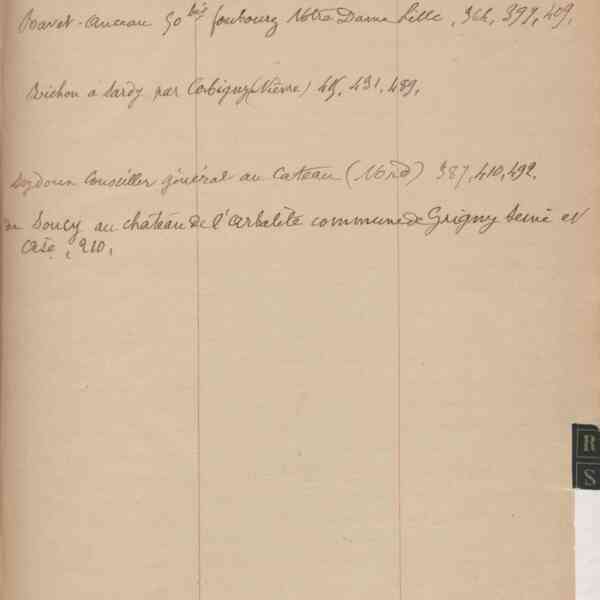 50 bis faubourg Notre Dame Lille, 364, 399, 409,
Bichon à Sardy par Corbigny (Nièvre) 415, 431, 489,
Conseiller général au Cateau (Nord) 387, 410, 492.
du Soucy au château de l'Arbalète commune de Grigny Seine et
Oise, 210,
R
S